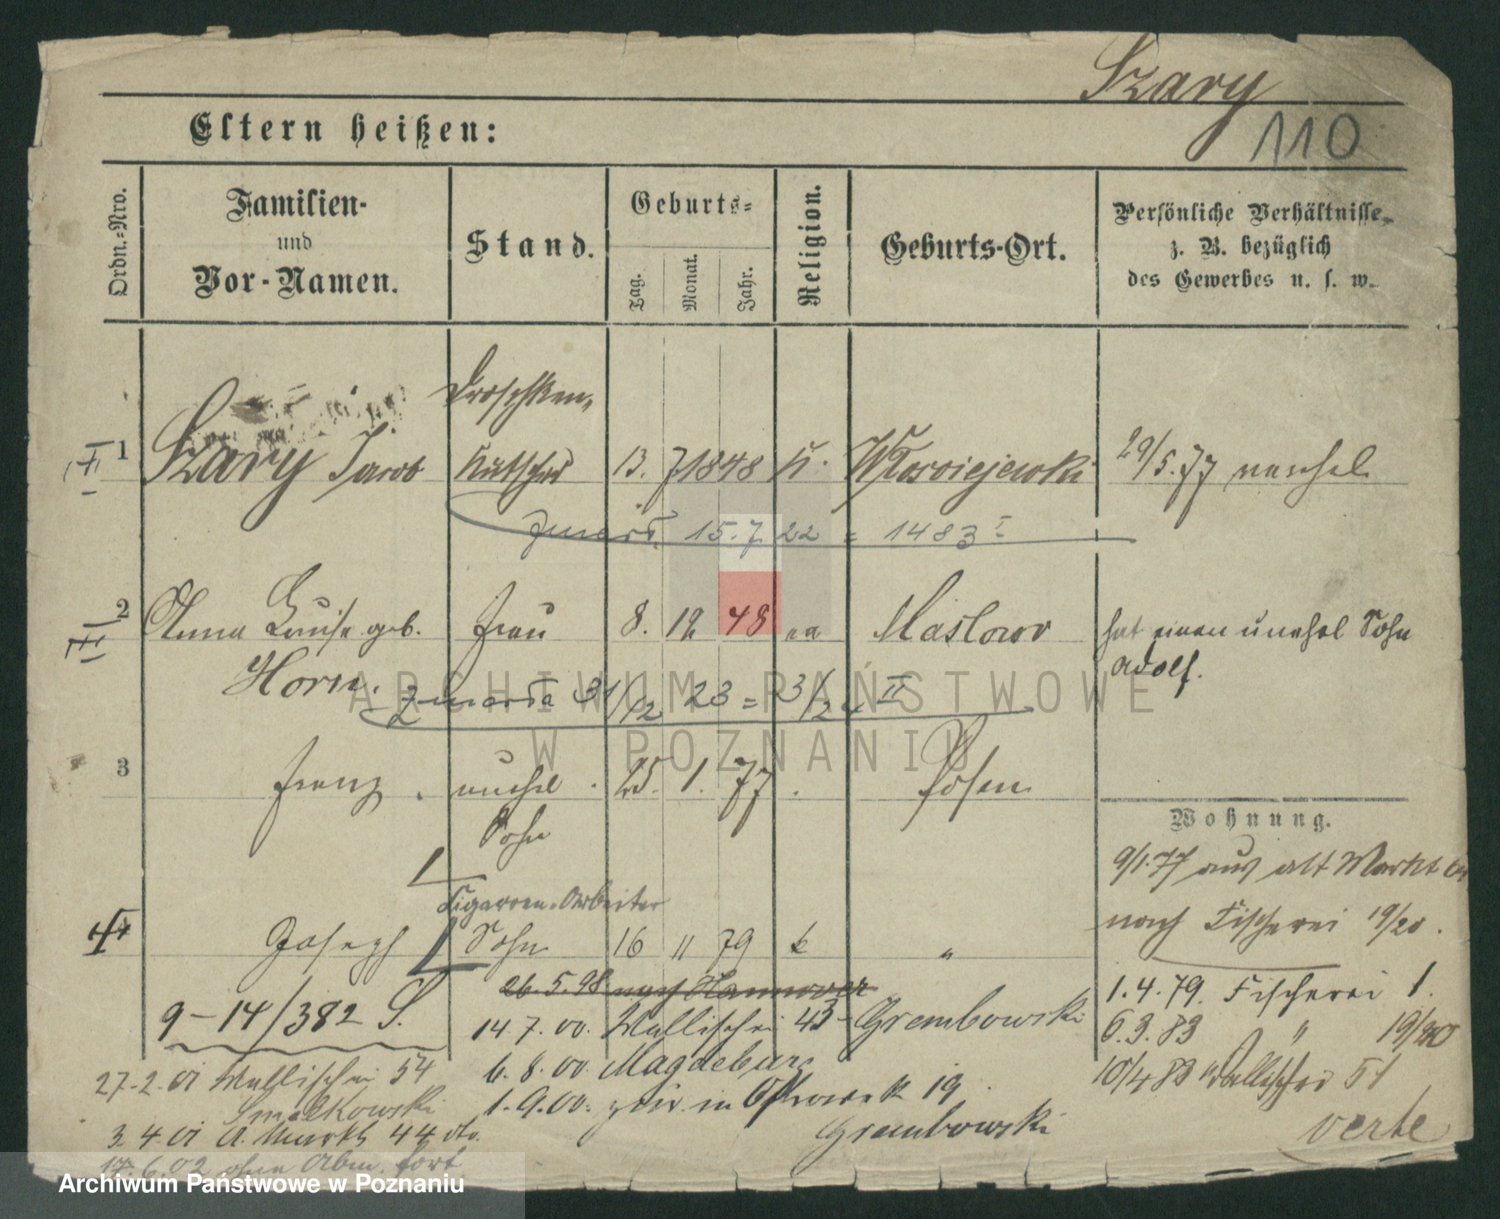 Szary
110
Eltern heißen:
Ordn.-Nro.
Familien-
und
Vor-Namen.
Stand.
Geburts-
Tag.
Monat.
Jahr.
Religion.
Geburts-Ort.
Persönliche Verhältnisse
z. B. bezüglich
des Gewerbes u. s. w.
Droschken-
1 Szary Jacob Kutscher 13. 7 1848 K. 29/5.77 verehel
15.7 22 = 1483 I
2 Anna Luise geb. Frau 8. 12 48 Maslowo hat einen unehel Sohn
Horn. Adolf.
Zmarła 31/12 23 = II
3 Franz unehel. 25. 1. 77. Posen
Sohn
Wohnung.
9/1.77 aus alt Markt
nach Fischerei 19/20.
Cigarren-Arbeiter
4 Joseph Sohn 16 11 79 k "
26.5.98 nach Hannover
1.4.79. Fischerei 1.
9-14/382 S.
14.7.00. Wallischei 43 Grembowski
6.3.83 " 19/20
27.2.01 Wallischei 54
6.8.00 Magdeburg
10/4 83 Wallischei 51
Smolkowski
1.9.00. zur. in Ostrowek 19.
Grembowski
3.4.01 A. Markt 44
verte
17.6.02 ohne Abm. fort
ARCHIWUM PAŃSTWOWE
W POZNANIU
Archiwum Państwowe w Poznaniu